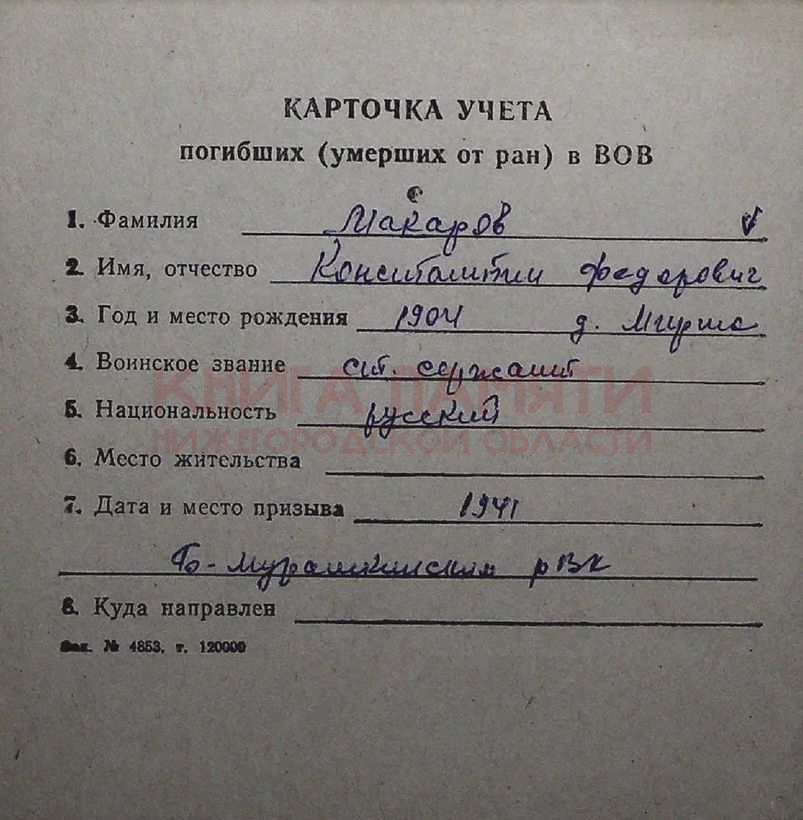 КАРТОЧКА УЧЕТА
погибших (умерших от ран) в ВОВ
1. Фамилия Макаров
2. Имя, отчество Константин Федорович
3. Год и место рождения 1904 д.
4. Воинское звание ст. сержант
КНИГА ПАМЯТИ
5. Национальность русский
НИЖЕГОРОДСКОЙ ОБЛАСТИ
6. Место жительства
7. Дата и место призыва 1941
Б-Мурашкинским рВК
8. Куда направлен
Зак. № 4853, т. 120000